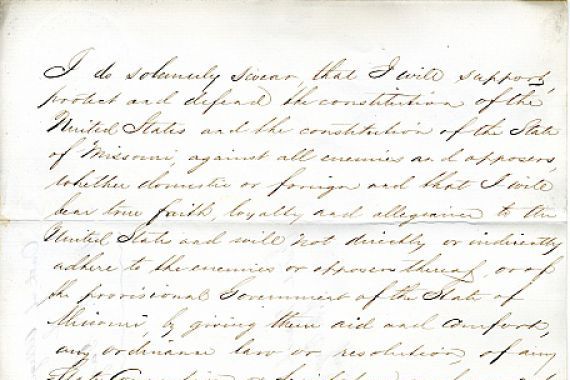 I do solemnly swear, that I will support,
protect and defend the constitution of the
United States and the constitution of the State
of Missouri, against all enemies and opposers,
whether domestic or foreign and that I will
bear true faith, loyalty and allegiance to the
United State and will not directly or indirectly
adhere to the enemies or opposers thereof, or of
the provisional Government of the State of
Missouri, by giving them aid and comfort,
any ordinance law or resolution, of any
State Convention or